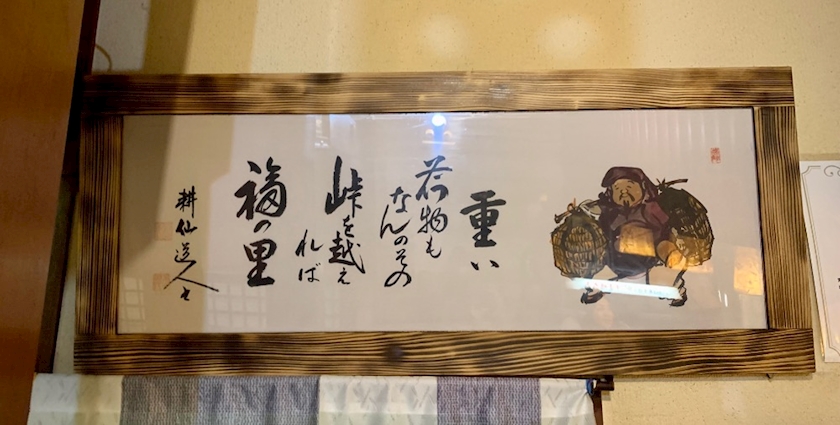 重い
荷物も
なんのその
峠を越え
れば
福の里
耕仙道人